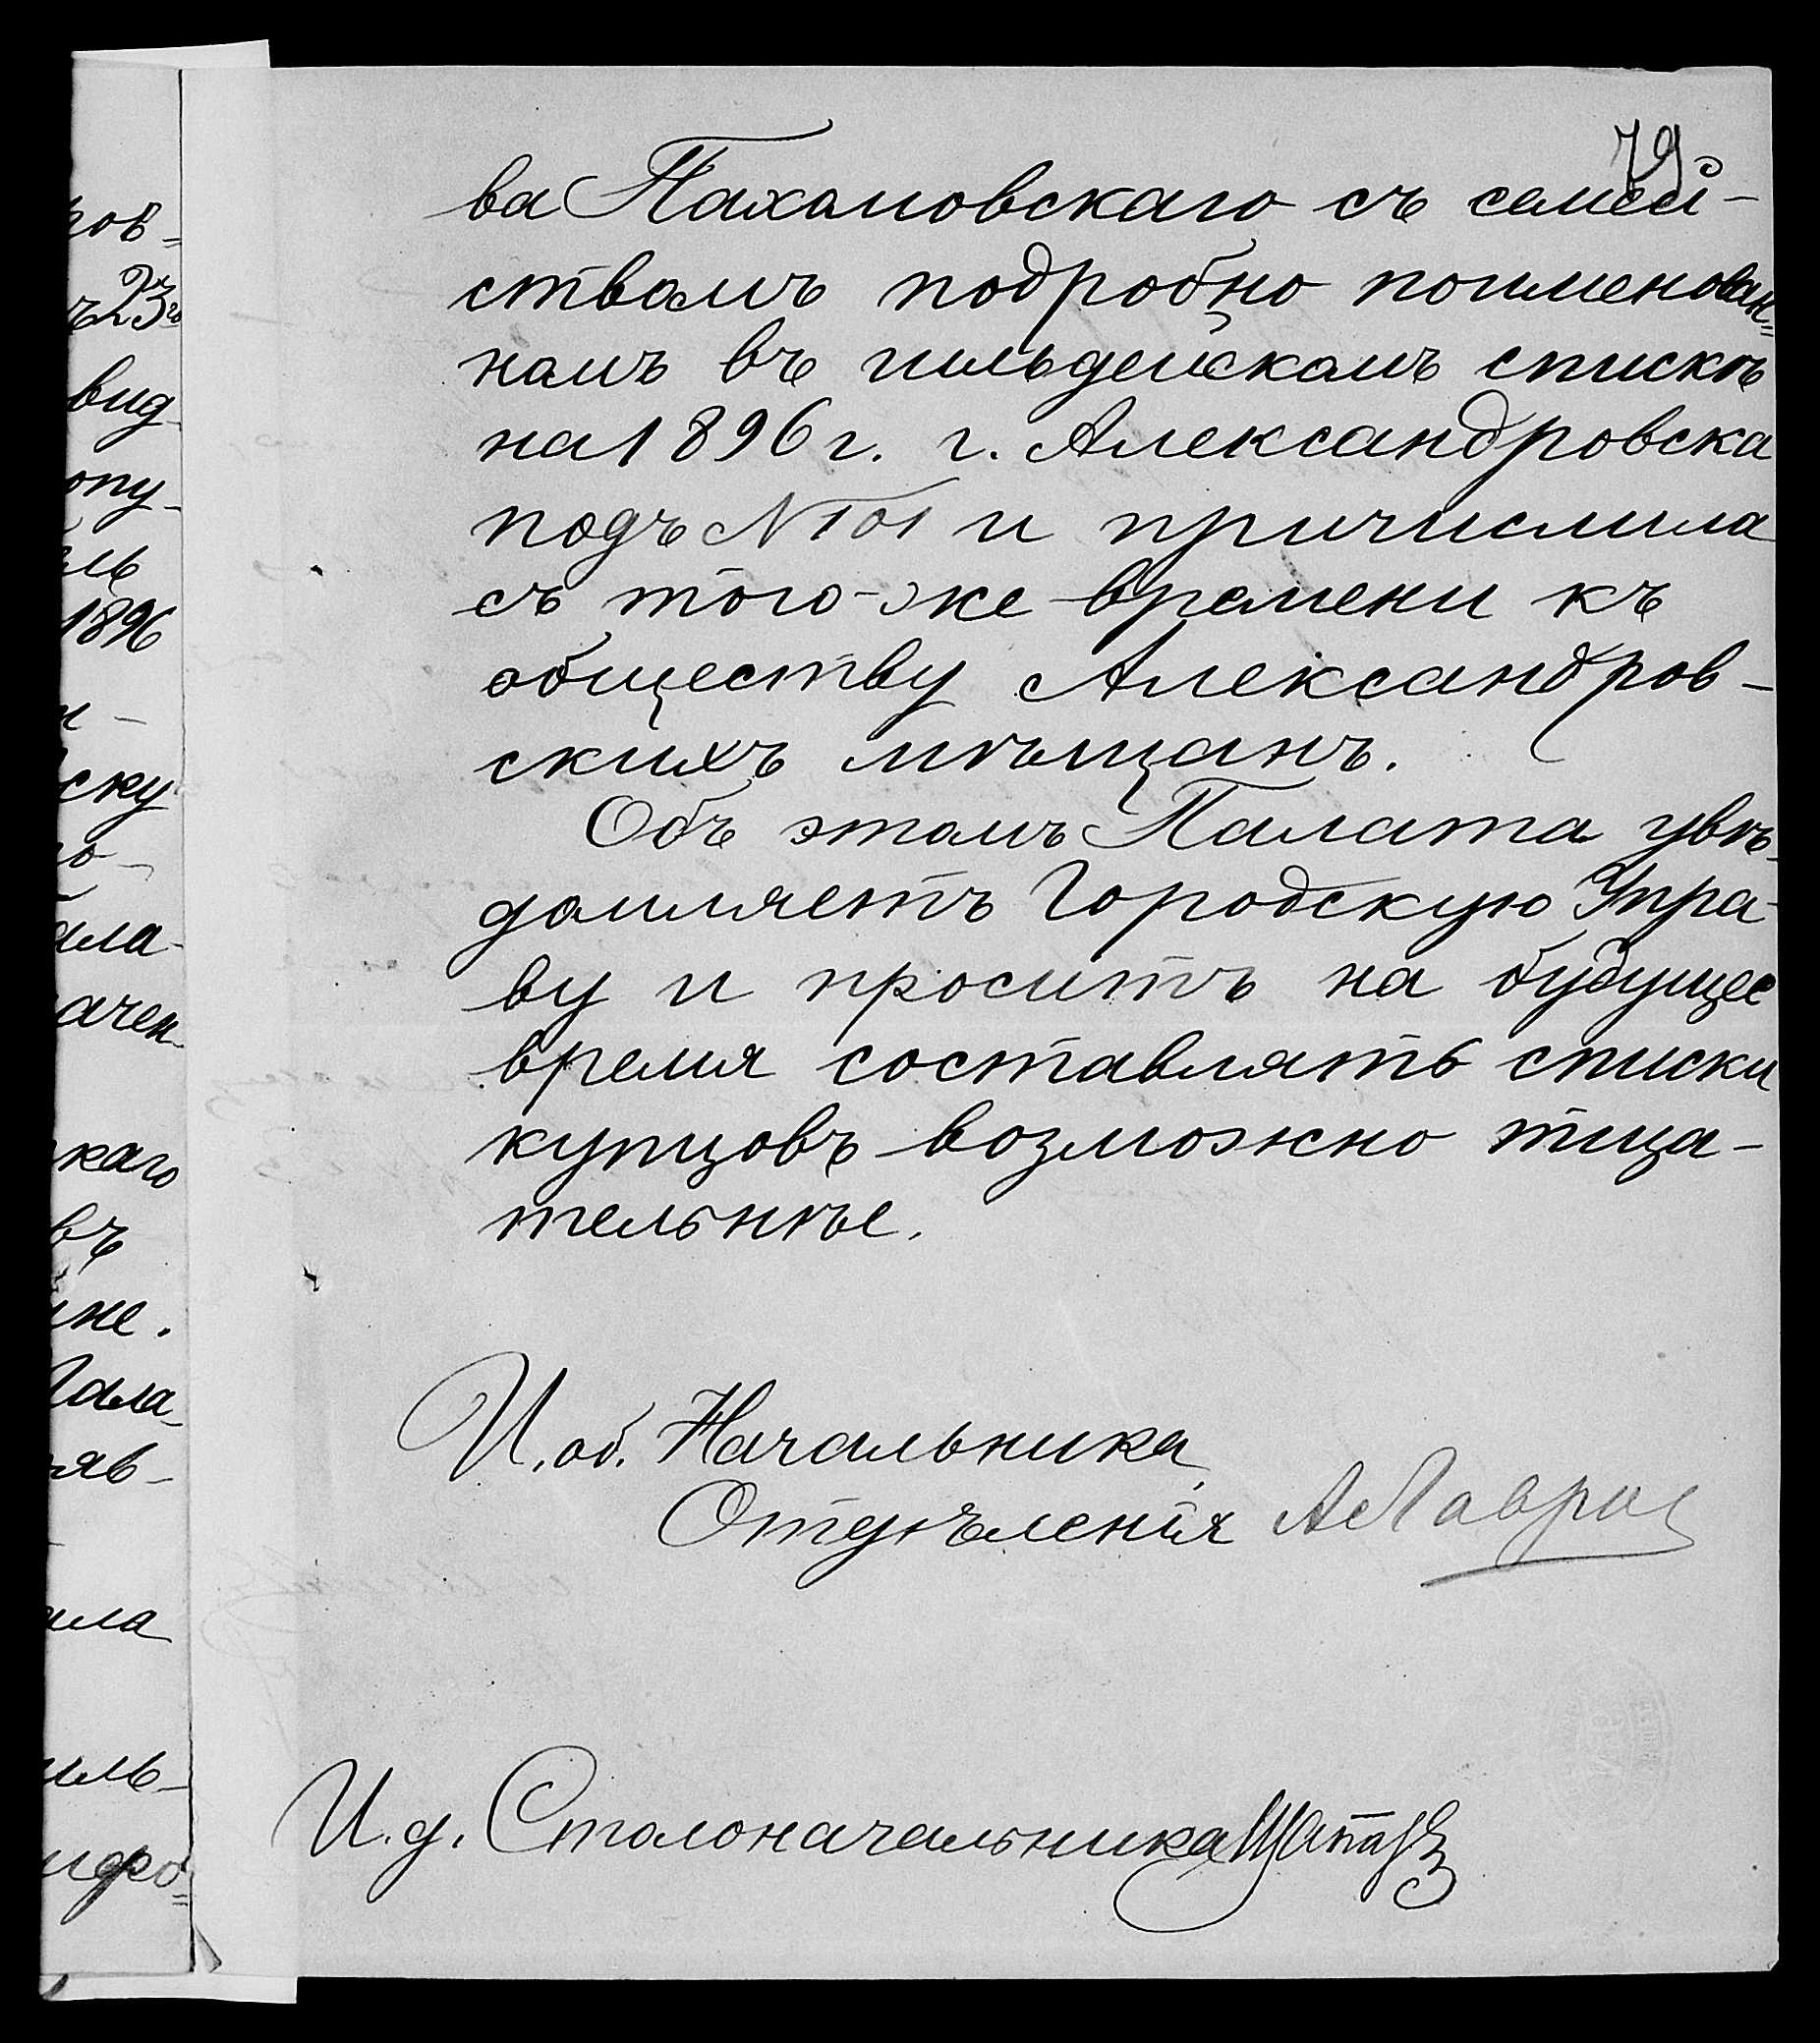 79
ва Пахомовскаго съ семей-
ствомъ подробно поименован=
номъ въ гильдейскомъ спискѣ
на 1896 г. г. Александровска
подъ N 101 и причислила
съ того-же времени къ
обществу Александров-
скихъ мѣщанъ.
Объ этомъ Палата увѣ-
домляетъ Городскую Упра-
ву и проситъ на будущее
время составлять списки
купцовъ возможно тща-
тельнѣе.
И. об. Начальника
Отдѣленія
И. д. Столоначальника
ров=
23го
вид-
опу-
1896
ску
ала-
ачен-
каго
въ
не.
Пала-
яв-
ила
иль-